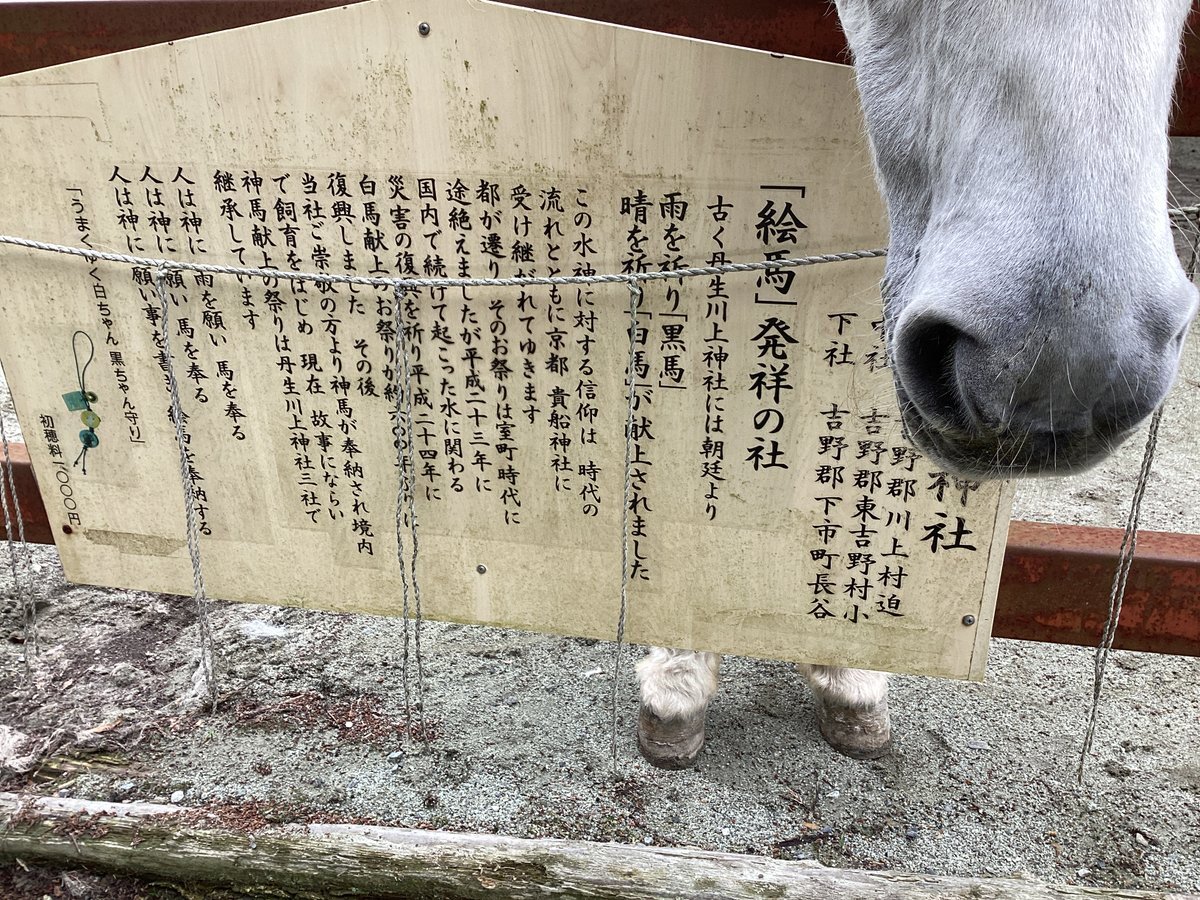 神社
野郡川上村迫
中社 吉野郡東吉野村小
下社 吉野郡下市町長谷
「絵馬」発祥の社
古く丹生川上神社には朝廷より
雨を祈り「黒馬」
晴を祈り「白馬」が献上されました
この水神に対する信仰は 時代の
流れとともに京都 貴船神社に
受け継がれてゆきます
都が遷り そのお祭りは室町時代に
途絶えましたが平成二十三年に
国内で続けて起こった水に関わる
災害の復興を祈り平成二十四年に
白馬献上のお祭りが約六〇〇年ぶりに
復興しました その後
当社ご崇敬の方より神馬が奉納され境内
で飼育をはじめ 現在 故事にならい
神馬献上の祭りは丹生川上神社三社で
継承しています
人は神に 雨を願い 馬を奉る
人は神に 願い 馬を奉る
人は神に 願い事を書き 絵馬を奉納する
「うまくゆく白ちゃん 黒ちゃん守り」
初穂料 一、〇〇〇円